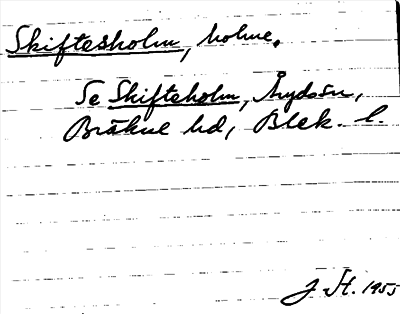 Skiftesholm, holme.
Se Skifteholm, Åryds sn,
Bräkne hd, Blek. l.
J. St. 1955